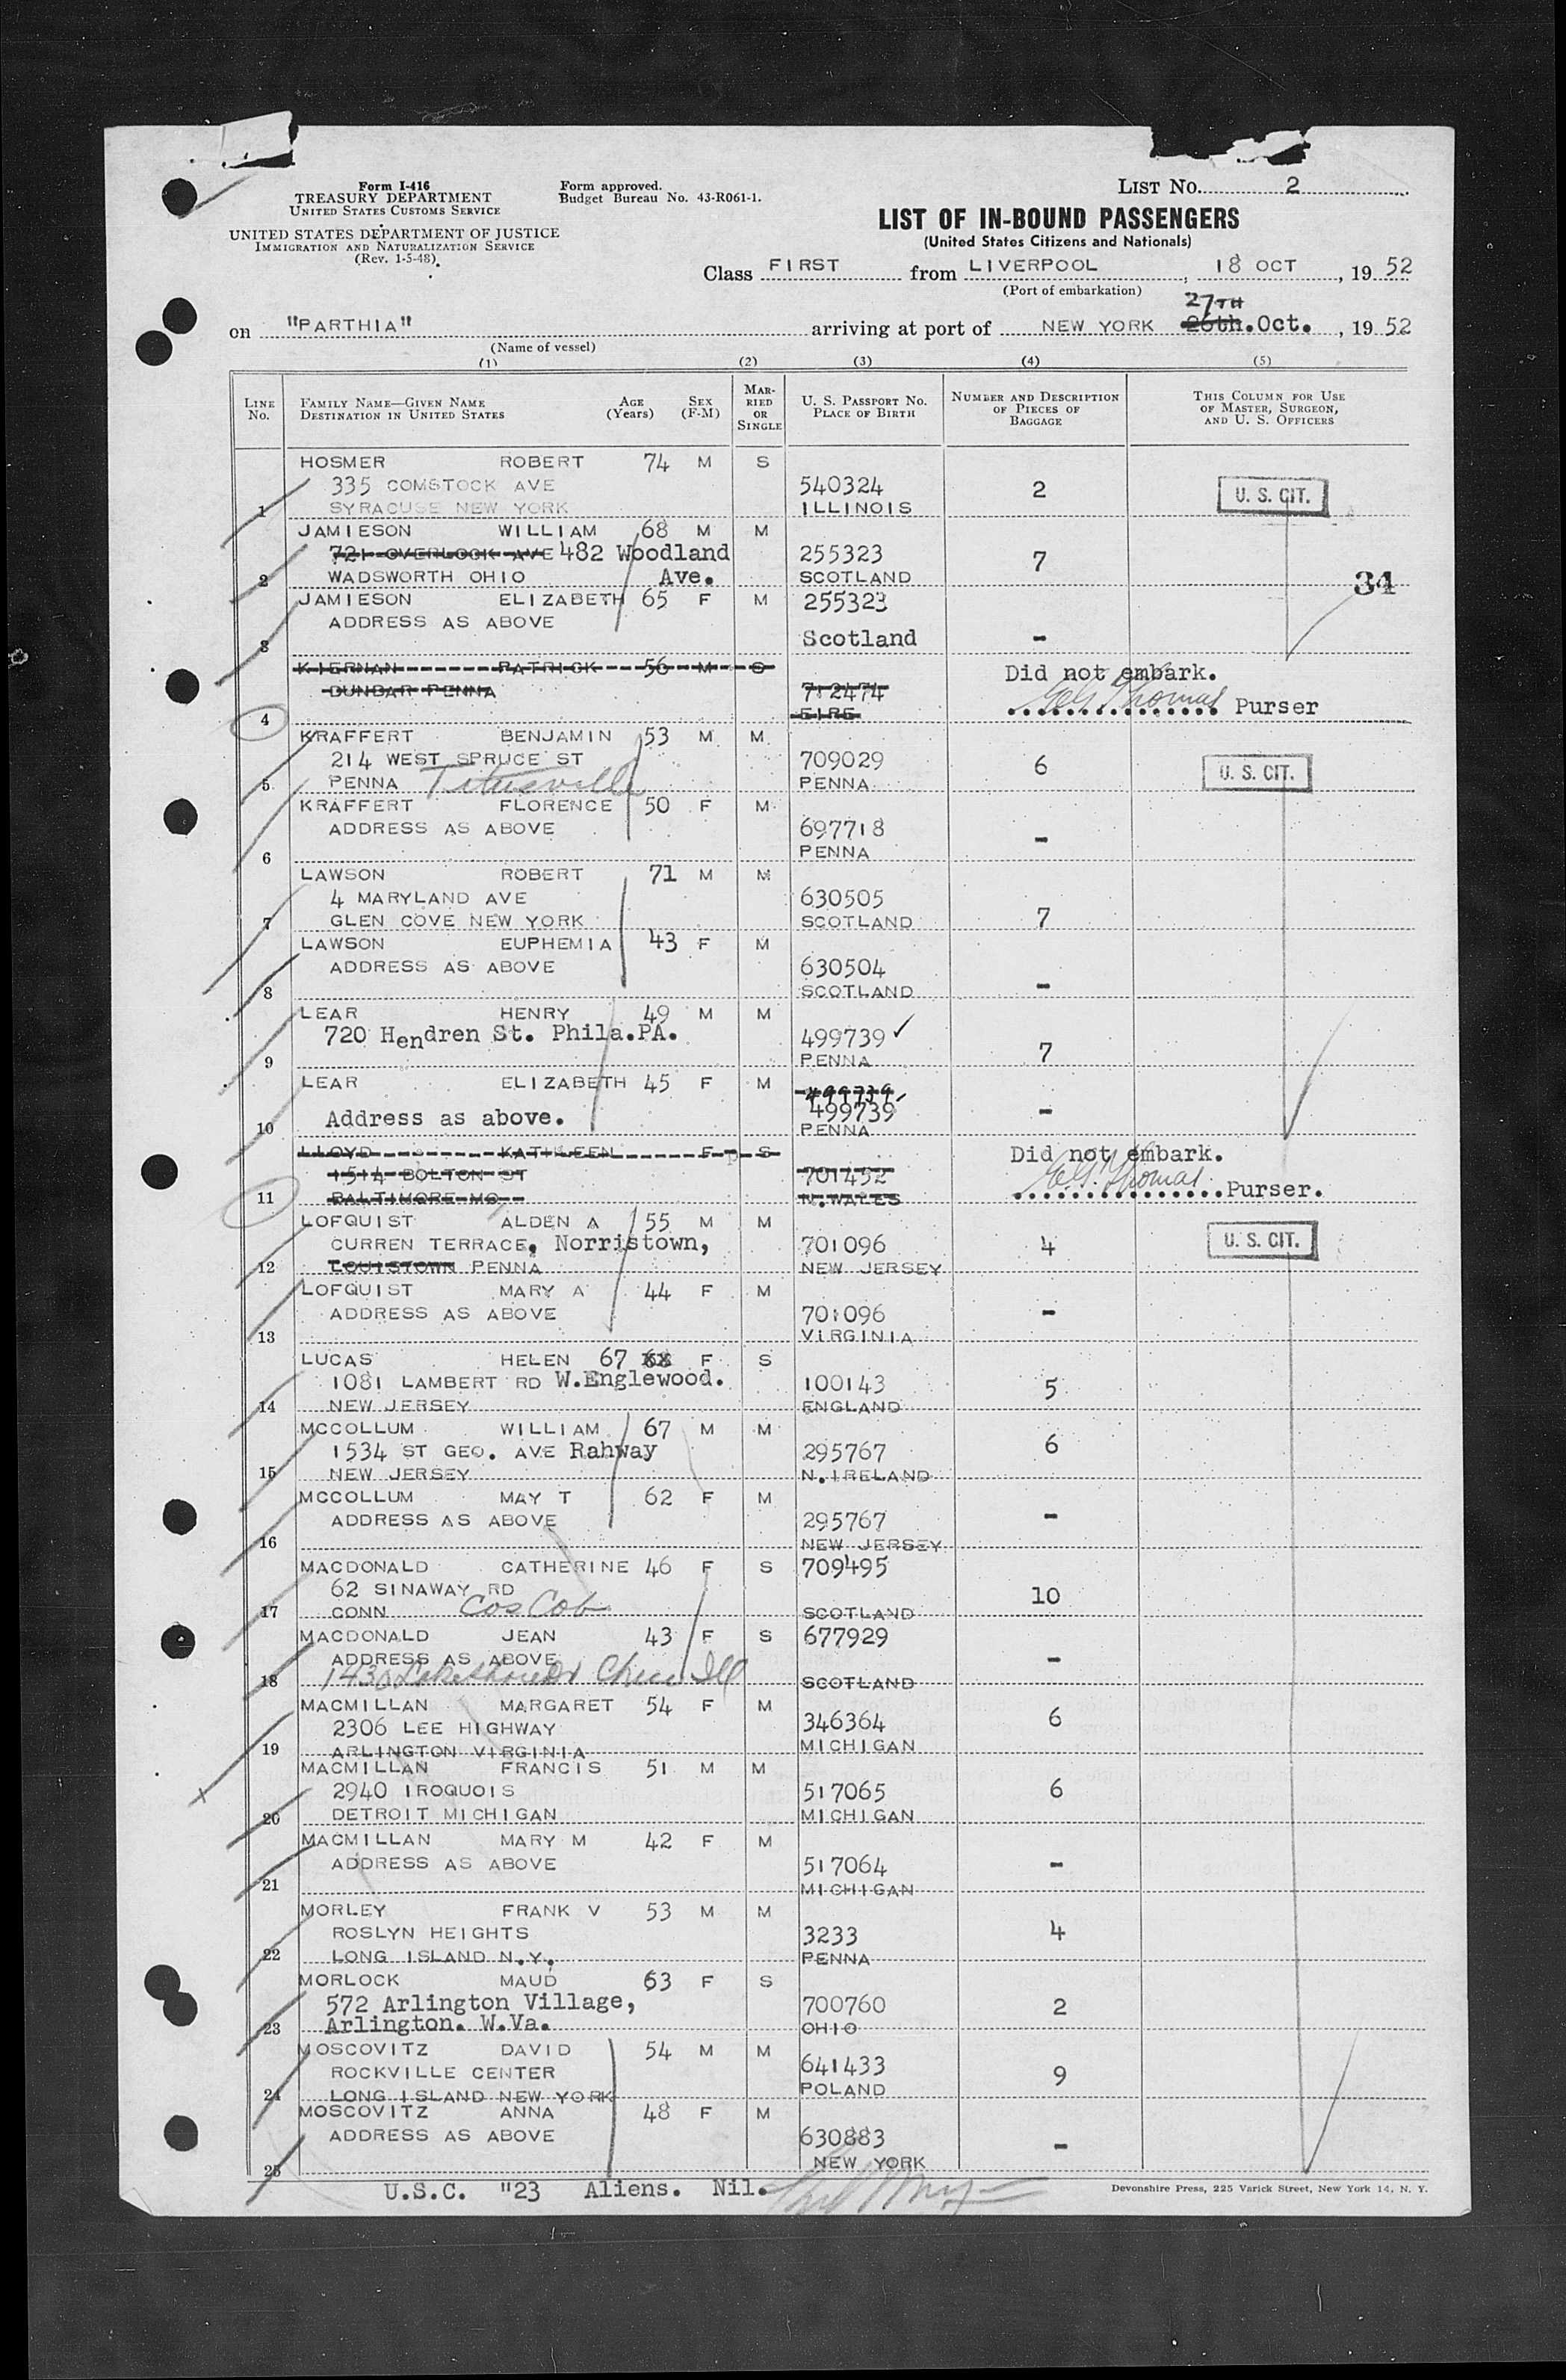 Form I-416
TREASURY DEPARTMENT
UNITED STATES CUSTOMS SERVICE
UNITED STATES DEPARTMENT OF JUSTICE
IMMIGRATION AND NATURALIZATION SERVICE
(Rev. 1-5-48)
Form approved.
Budget Bureau No. 43-R061-1.
LIST No. 2
LIST OF IN-BOUND PASSENGERS
(United States Citizens and Nationals)
Class FIRST from LIVERPOOL, 18 OCT, 19 52
(Port of embarkation)
27TH
on "PARTHIA" arriving at port of NEW YORK 26th.Oct., 19 52
(Name of vessel)
(1) (2) (3) (4) (5)
LINE No. FAMILY NAME—GIVEN NAME DESTINATION IN UNITED STATES AGE (Years) SEX (F-M) MARRIED OR SINGLE U. S. PASSPORT No. PLACE OF BIRTH NUMBER AND DESCRIPTION OF PIECES OF BAGGAGE THIS COLUMN FOR USE OF MASTER, SURGEON, AND U. S. OFFICERS
HOSMER ROBERT 74 M S
335 COMSTOCK AVE 540324 2 U. S. CIT.
1 SYRACUSE NEW YORK ILLINOIS
JAMIESON WILLIAM 68 M M
721 OVERLOOK AVE 482 Woodland 255323 7
2 WADSWORTH OHIO Ave. SCOTLAND 34
JAMIESON ELIZABETH 65 F M 255323
ADDRESS AS ABOVE
3 Scotland -
KIERNAN PATRICK 56 M S Did not embark.
DUNBAR PENNA 712474
4 EIRE E.G. Thomas Purser
KRAFFERT BENJAMIN 53 M M
214 WEST SPRUCE ST 709029 6 U. S. CIT.
5 PENNA Titusville PENNA
KRAFFERT FLORENCE 50 F M
ADDRESS AS ABOVE 697718 -
6 PENNA
LAWSON ROBERT 71 M M
4 MARYLAND AVE 630505
7 GLEN COVE NEW YORK SCOTLAND 7
LAWSON EUPHEMIA 43 F M
ADDRESS AS ABOVE 630504
8 SCOTLAND -
LEAR HENRY 49 M M
720 Hendren St. Phila.PA. 499739 ✓
9 PENNA 7
LEAR ELIZABETH 45 F M 499739
Address as above. 499739 -
10 PENNA
LLOYD KATHLEEN F S Did not embark.
1514 BOLTON ST 701452
11 BALTIMORE MO N.WALES E.G. Thomas Purser.
LOFQUIST ALDEN A 55 M M
CURREN TERRACE, Norristown, 701096 4 U. S. CIT.
12 LOUISTOWN PENNA NEW JERSEY
LOFQUIST MARY A 44 F M
ADDRESS AS ABOVE 701096 -
13 VIRGINIA
LUCAS HELEN 67 68 F S
1081 LAMBERT RD W.Englewood. 100143 5
14 NEW JERSEY ENGLAND
MCCOLLUM WILLIAM 67 M M
1534 ST GEO. AVE Rahway 295767 6
15 NEW JERSEY N.IRELAND
MCCOLLUM MAY T 62 F M
ADDRESS AS ABOVE 295767 -
16 NEW JERSEY
MACDONALD CATHERINE 46 F S 709495
62 SINAWAY RD 10
17 CONN Cos Cob SCOTLAND
MACDONALD JEAN 43 F S 677929
ADDRESS AS ABOVE -
18 1430 Lakeshore Dr Ill SCOTLAND
MACMILLAN MARGARET 54 F M
2306 LEE HIGHWAY 346364 6
19 ARLINGTON VIRGINIA MICHIGAN
MACMILLAN FRANCIS 51 M M
2940 IROQUOIS 517065 6
20 DETROIT MICHIGAN MICHIGAN
MACMILLAN MARY M 42 F M
ADDRESS AS ABOVE 517064 -
21 MICHIGAN
MORLEY FRANK V 53 M M
ROSLYN HEIGHTS 3233 4
22 LONG ISLAND N.Y. PENNA
MORLOCK MAUD 63 F S
572 Arlington Village, 700760 2
23 Arlington. W.Va. OHIO
MOSCOVITZ DAVID 54 M M
ROCKVILLE CENTER 641433 9
24 LONG ISLAND NEW YORK POLAND
MOSCOVITZ ANNA 48 F M
ADDRESS AS ABOVE 630883 -
25 NEW YORK
U.S.C. "23 Aliens. Nil.
Devonshire Press, 225 Varick Street, New York 14, N. Y.